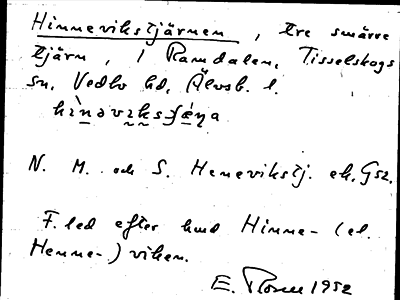 Hinnevikstjärnen, tre smärre
tjärn, i Ramdalen, Tisselskogs
sn, Vedbo hd, Älvsb. l.
N. M. och S. Henevikstj. ek. Gsz.
F. led efter hmd Hinne- (el.
Henne-) viken.
E. Rosen 1952